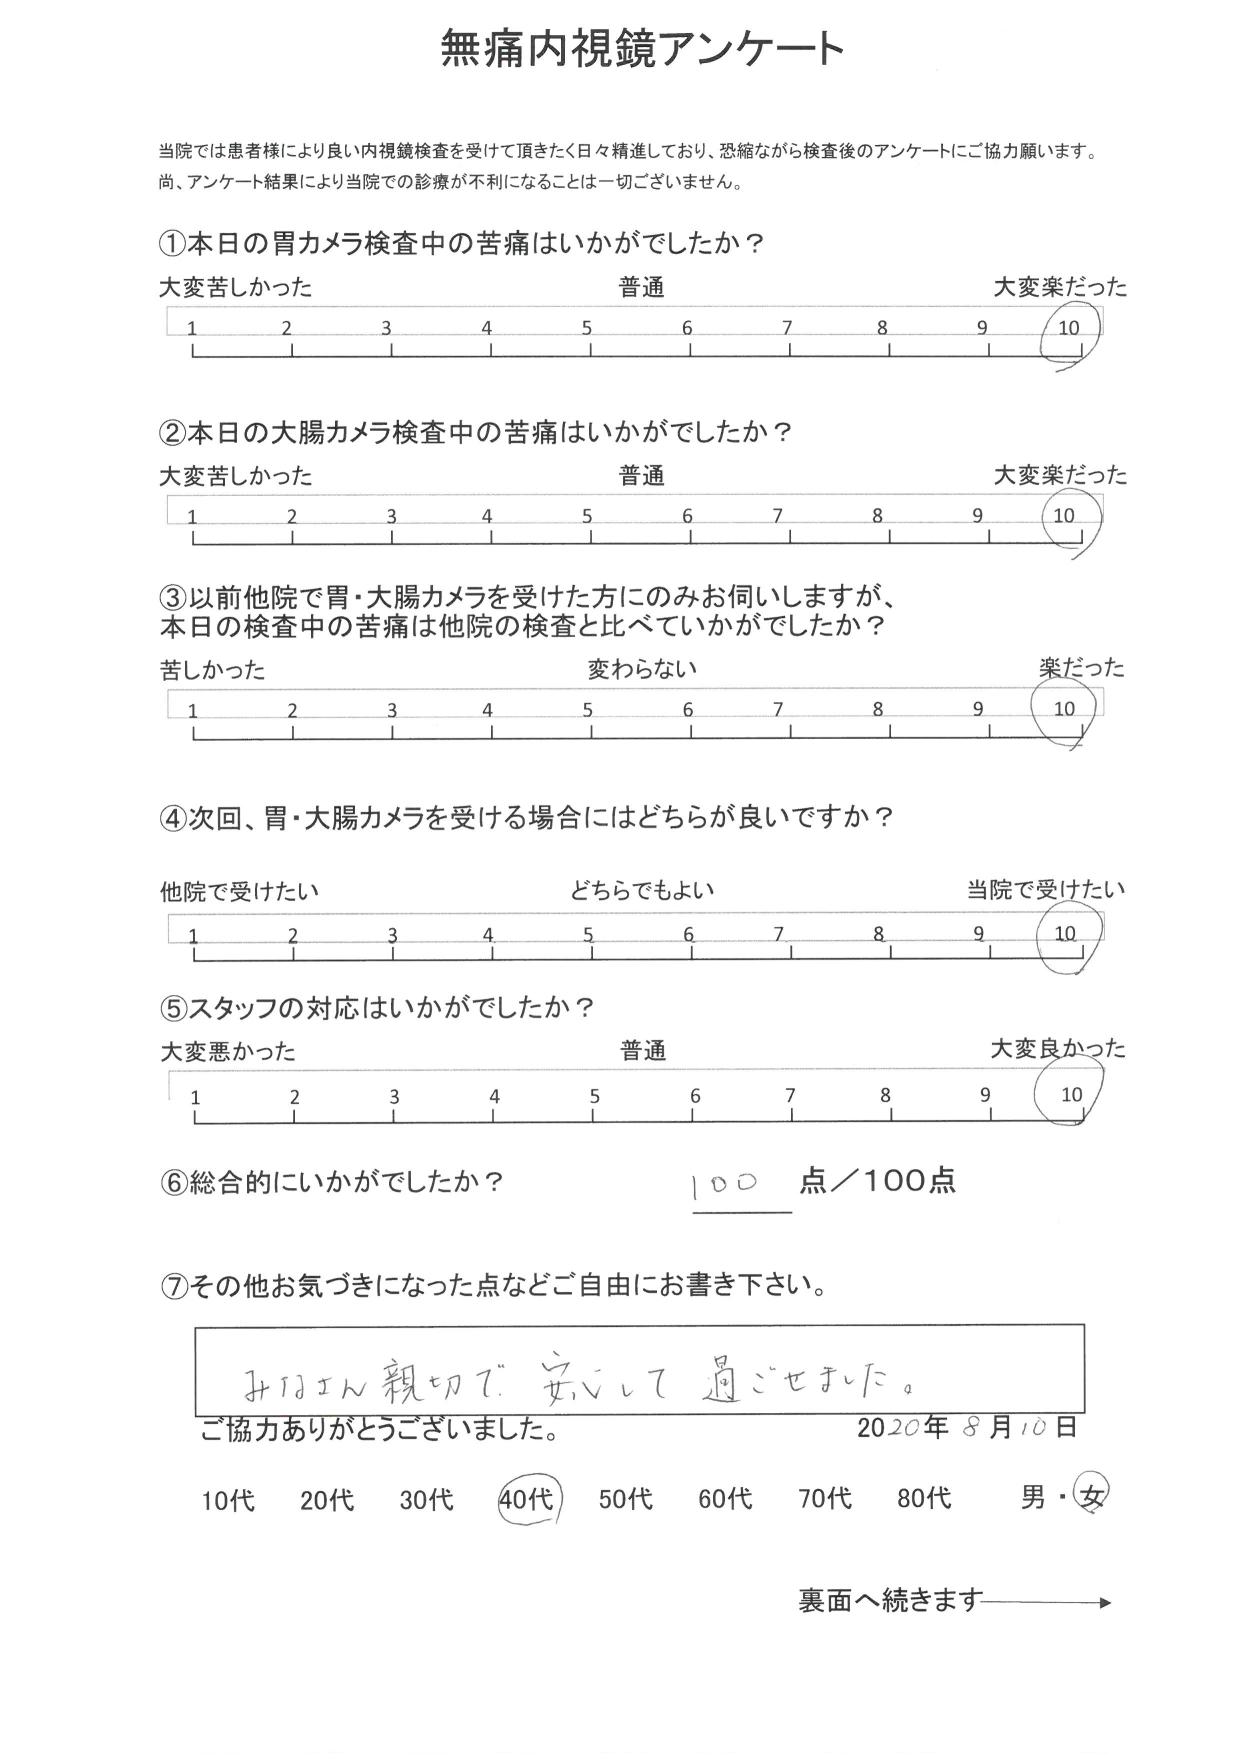 無痛内視鏡アンケート
当院では患者様により良い内視鏡検査を受けて頂きたく日々精進しており、恐縮ながら検査後のアンケートにご協力願います。
尚、アンケート結果により当院での診療が不利になることは一切ございません。
①本日の胃カメラ検査中の苦痛はいかがでしたか？
大変苦しかった 普通 大変楽だった
1 2 3 4 5 6 7 8 9 10
②本日の大腸カメラ検査中の苦痛はいかがでしたか？
大変苦しかった 普通 大変楽だった
1 2 3 4 5 6 7 8 9 10
③以前他院で胃・大腸カメラを受けた方にのみお伺いしますが、
本日の検査中の苦痛は他院の検査と比べていかがでしたか？
苦しかった 変わらない 楽だった
1 2 3 4 5 6 7 8 9 10
④次回、胃・大腸カメラを受ける場合にはどちらが良いですか？
他院で受けたい どちらでもよい 当院で受けたい
1 2 3 4 5 6 7 8 9 10
⑤スタッフの対応はいかがでしたか？
大変悪かった 普通 大変良かった
1 2 3 4 5 6 7 8 9 10
⑥総合的にいかがでしたか？ 100 点／100点
⑦その他お気づきになった点などご自由にお書き下さい。
みなさん親切で 安心して 過ごせました。
ご協力ありがとうございました。 2020年 8月10日
10代 20代 30代 40代 50代 60代 70代 80代 男・女
裏面へ続きます